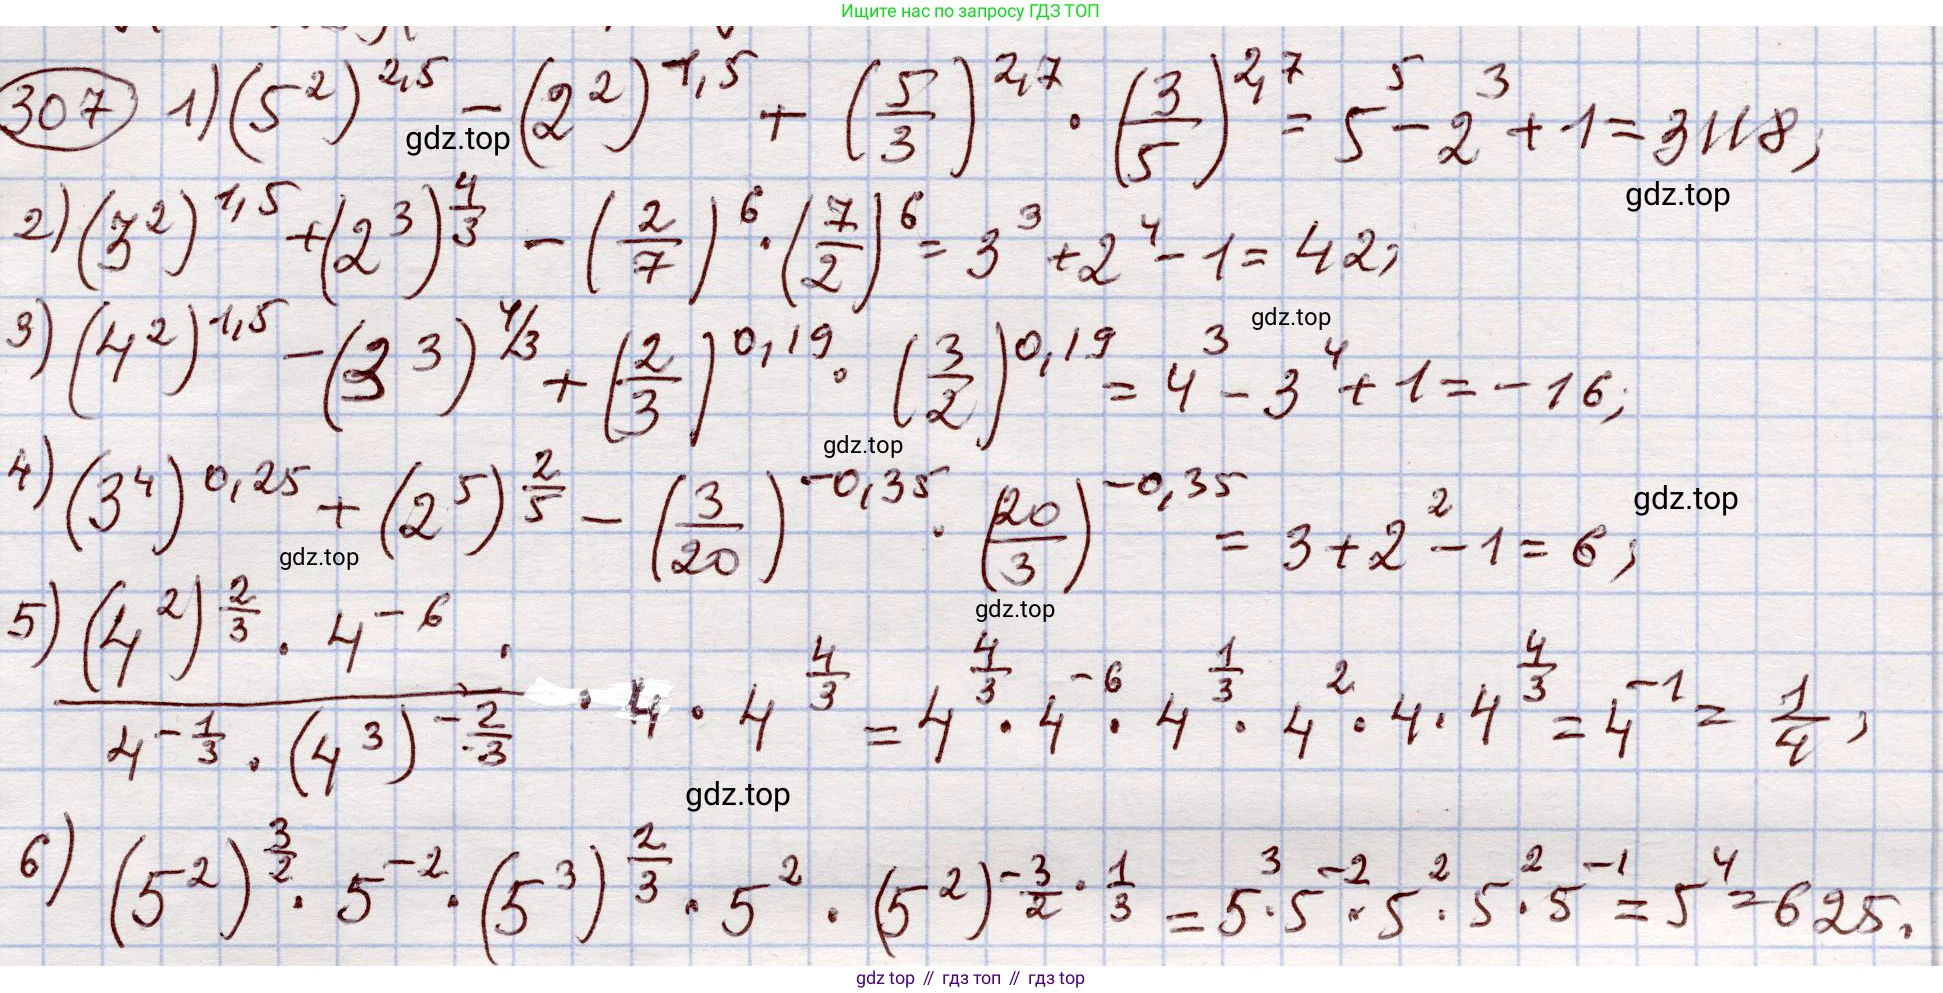 Ищите нас по запросу ГДЗ ТОП
307 1) (5²)^2,5 − (2²)^1,5 + (5/3)^2,7 · (3/5)^2,7 = 5⁵ − 2³ + 1 = 3118;
gdz.top
gdz.top
2) (3²)^1,5 + (2³)^4/3 − (2/7)⁶ · (7/2)⁶ = 3³ + 2⁴ − 1 = 42;
gdz.top
3) (4²)^1,5 − (3³)^4/3 + (2/3)^0,19 · (3/2)^0,19 = 4³ − 3⁴ + 1 = −16;
gdz.top
4) (3⁴)^0,25 + (2⁵)^2/5 − (3/20)^−0,35 · (20/3)^−0,35 = 3 + 2² − 1 = 6;
gdz.top
gdz.top
gdz.top
5) (4²)^2/3 · 4^−6 · / 4^−1/3 · (4³)^−2/3 · 4 · 4^4/3 = 4^4/3 · 4^−6 · 4^1/3 · 4² · 4 · 4^4/3 = 4^−1 = 1/4;
gdz.top
6) (5²)^3/2 · 5^−2 · (5³)^2/3 · 5² · (5²)^−3/2 · 1/3 = 5³ · 5^−2 · 5² · 5² · 5^−1 = 5⁴ = 625.
gdz top // гдз топ // гдз top